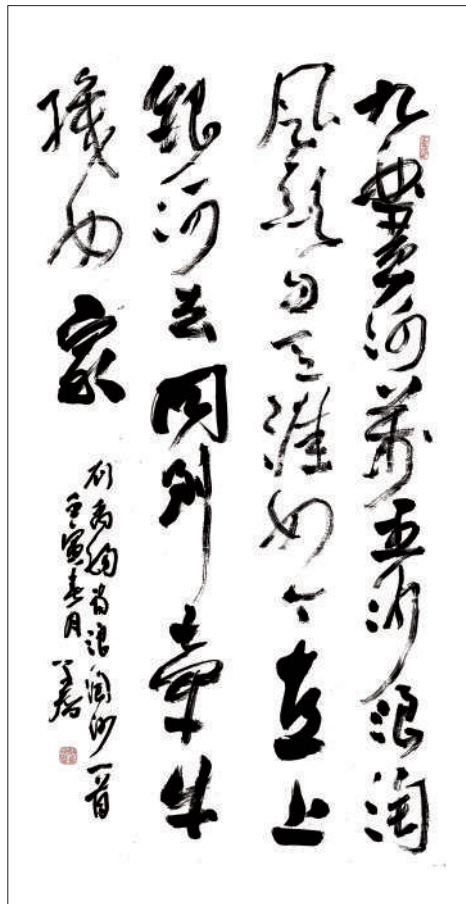 九曲黄河萬里沙浪淘
風簸自天涯如今直上
銀河去同到牽牛
織女家
刘禹錫诗浪淘沙一首
壬寅春月